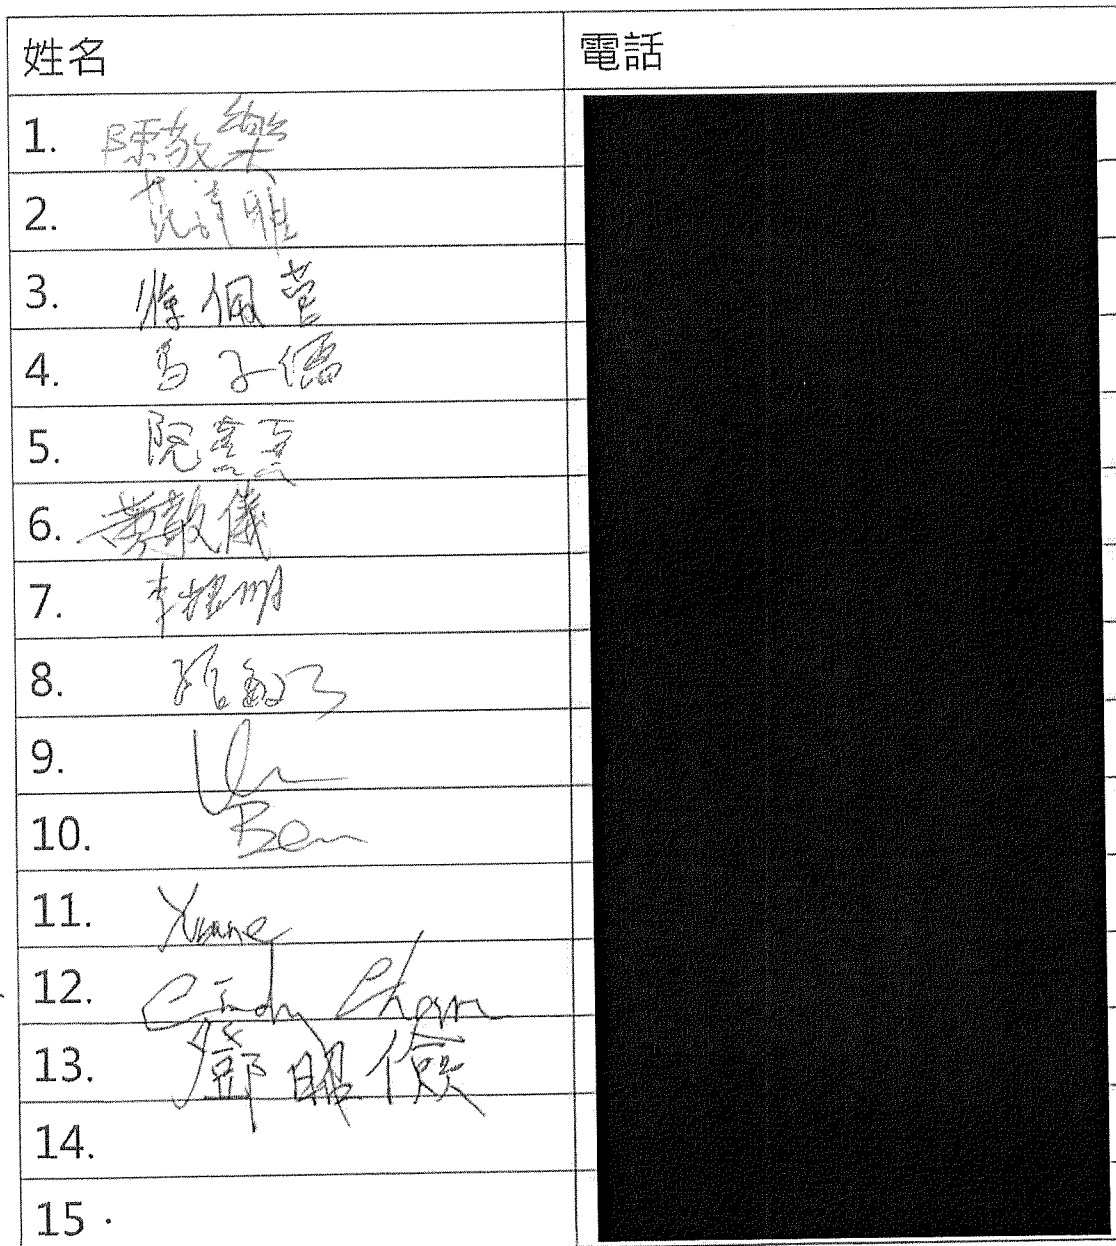 姓名 電話
1. 陳敬樂
2. 范詩雅
3. 徐佩萱
4. 馬子儒
5. 阮
6. 黃敬儀
7. 李 明
8. 羅敏
9.
10. Ben
11. Yvonne
12. Cindy Chan
13. 鄧昭儉
14.
15.